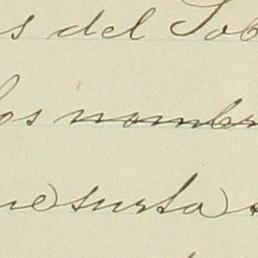 s del Sob
los nombr
ue surta